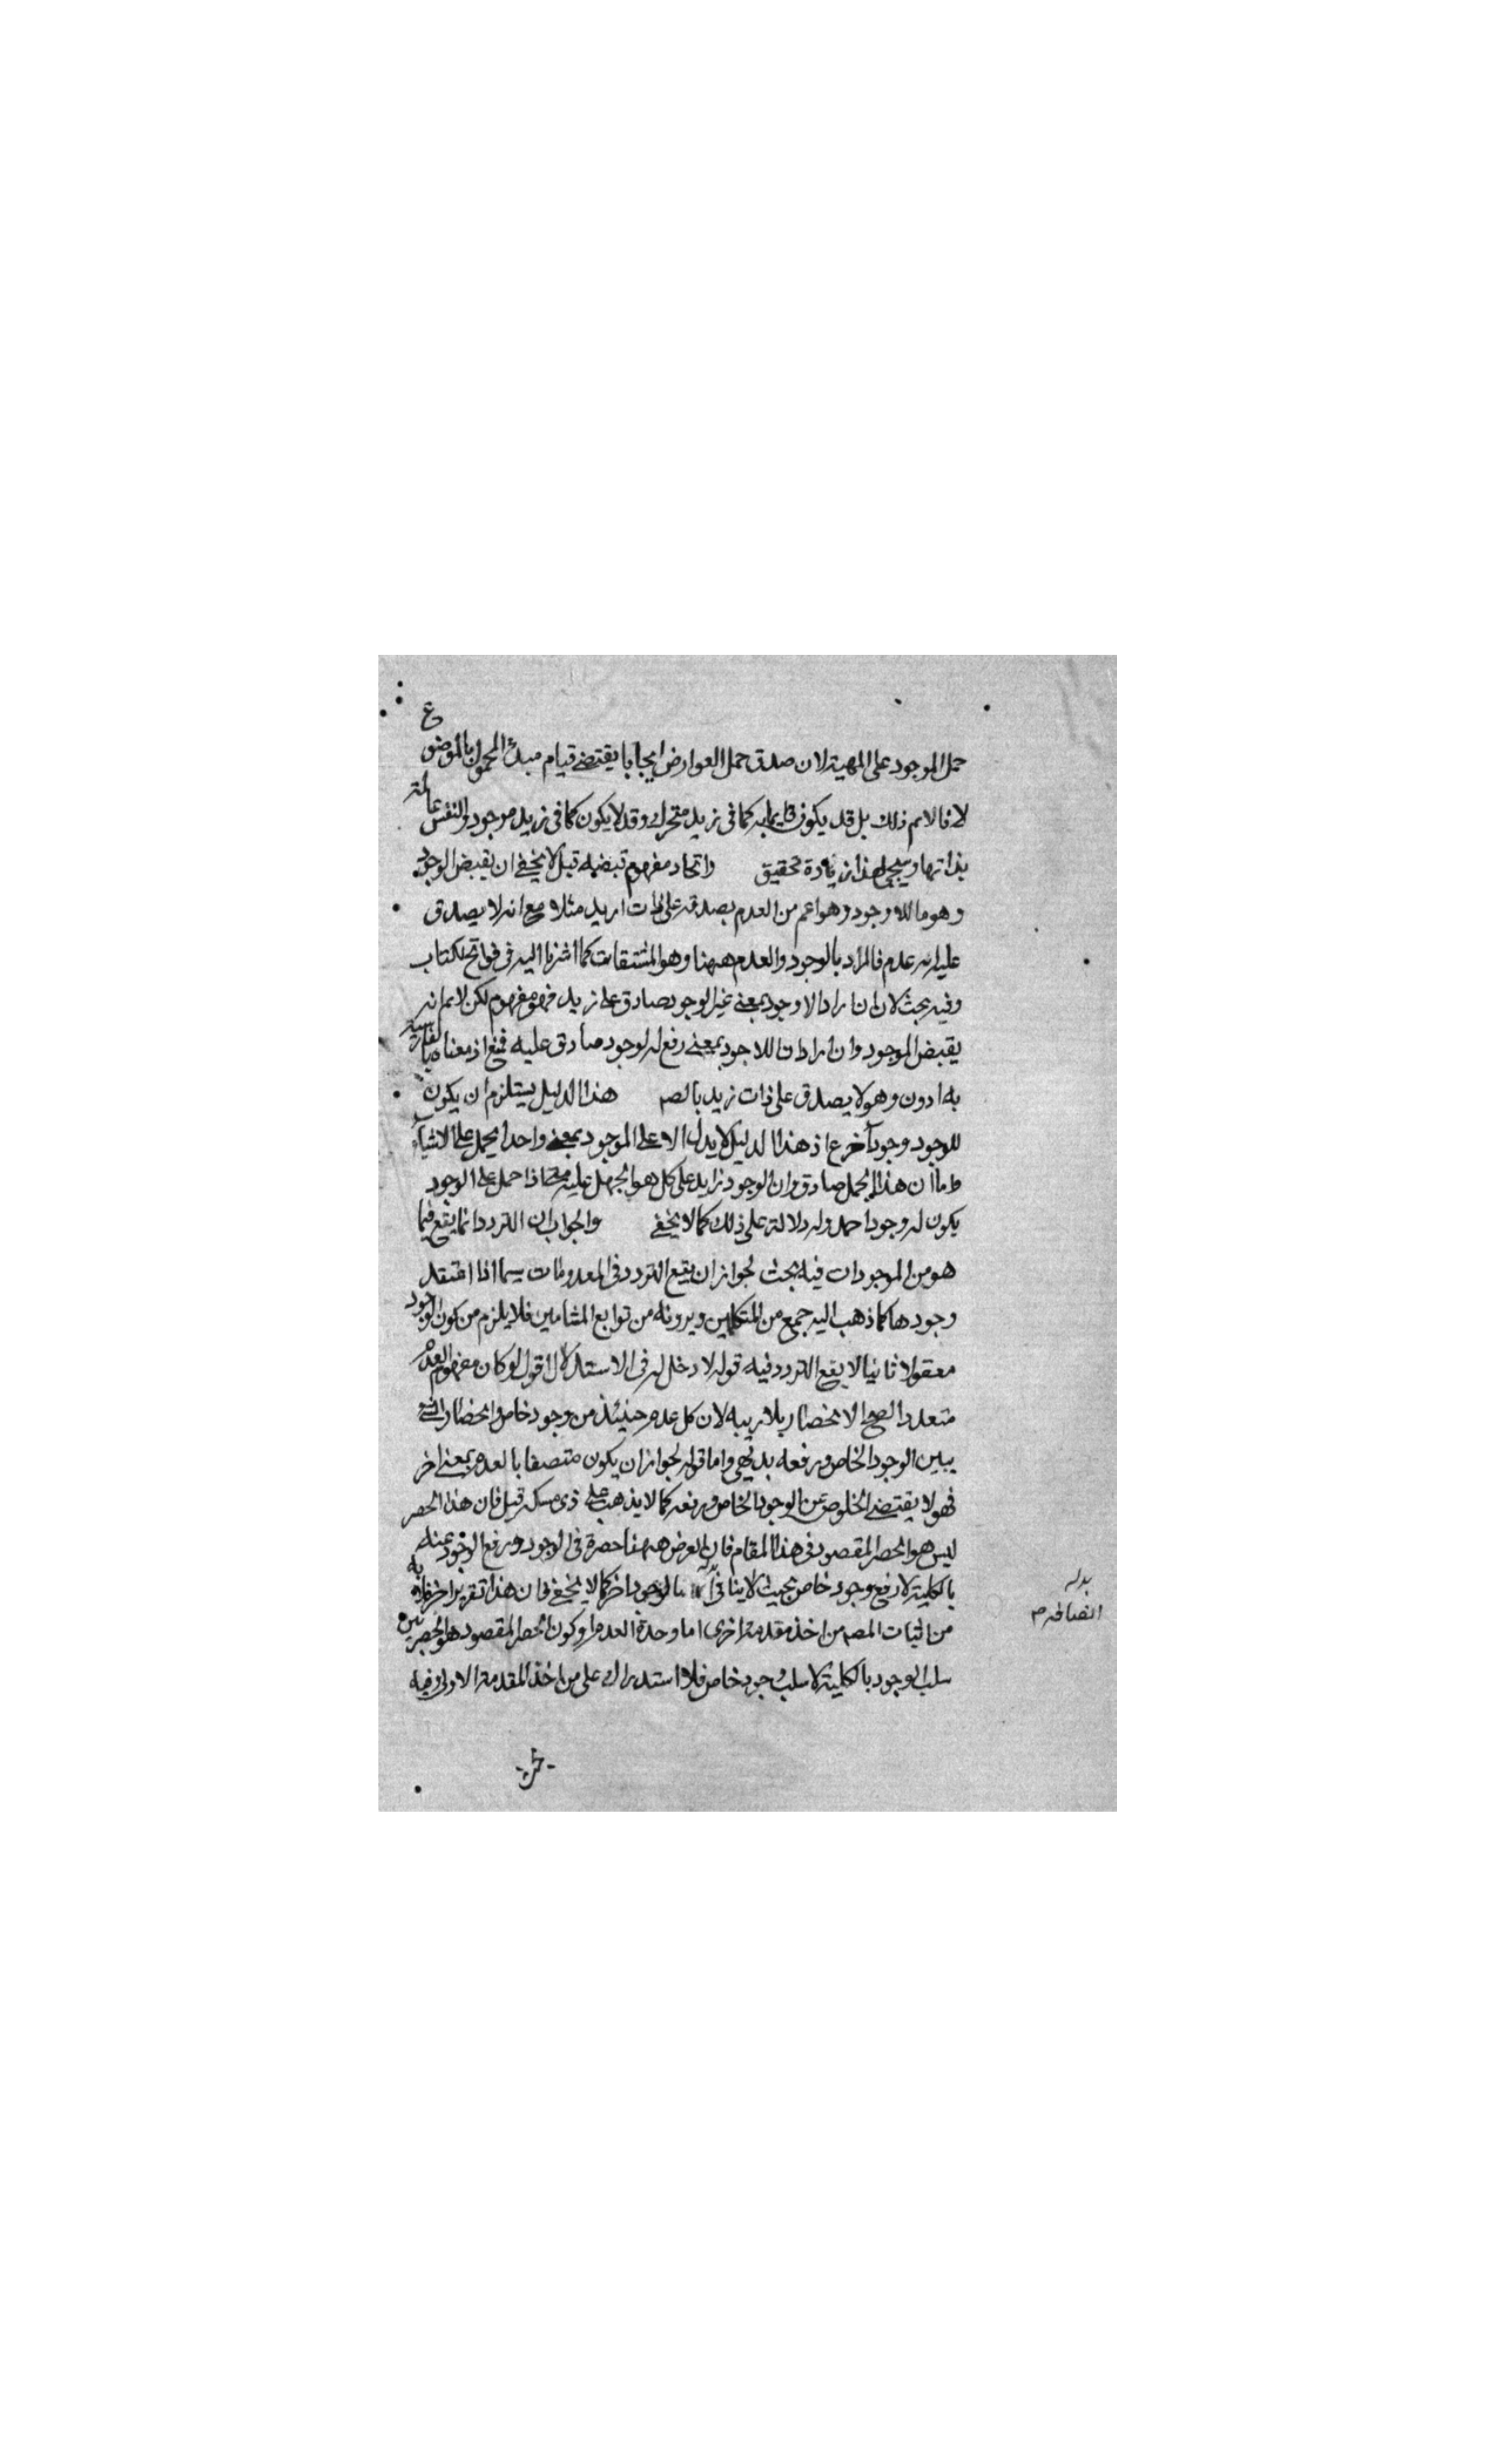 حمل الموجود على المهية لان صدق حمل العوارض ايجابا يقتضے قيام مبدأ المحمول بالموضوع
لانا لانم ذلك بل قد يكون قايما به كما فى زيد متحرك وقد لا يكون كما فى زيد موجود والنفس عالمة
بذاتها وسيجئ لهذا زيادة تحقيق واتحاد مفهوم نقيضه قيل لا يخفے ان نقيض الوجود
وهو ما اللاوجود وهو اعم من العدم بصدقه على ذات زيد مثلا مع انه لا يصدق
عليه انه عدم فالمراد بالوجود والعدم ههنا وهو المشتقات كما اشرنا اليه فى فواتح الكتاب
وفيه بحث لان ان اراد ان اللاوجود بمعنے غير الوجود صادق على زيد فهو مفهوم لكن لانم انه
نقيض الموجود وان اراد ان اللاوجود بمعنے رفع الوجود صادق عليه فمنع اذ معناه بالفارسية
نه ا دون وهو لا يصدق على ذات زيد بالصه هذا الدليل يستلزم ان يكون
للوجود وجودا آخر ع اذ هذا الدليل لا يدل الا على الموجود بمعنے واحد يحمل على الاشياء
واما ان هذا الحمل صادق وان الوجود زايد على كل هو حتى اذا حمل على الوجود
يكون له وجودا دلالة على ذلك كما لا يخفے والجواب ان التردد انما يقع فيما
هو من الموجودات فيه بحث لجواز ان يقع التردد فى المعدومات سيما اذا اعتقد
وجودها كما ذهب اليه جمع من المتكلمين ويرونه من توابع المشائين فلا يلزم من كون الوجود
معقولا ثانيا لا يقع التردد فيه قوله لا دخل له فى الاستدلال اقول لو كان مفهوم العدم
متعددا لصح الانحصار بلا ريبه لان كل عدم حينئذ من وجود خاص وانحصار الشئ
بين الوجود الخاص ورفعه بديهى واما قوله لجواز ان يكون متصفا بالعدم بمعنے اخر
فهو لا يقتضے الخلوص عن الوجود الخاص ورفعه كما لا يذهب على ذى مسكه قيل فان هذا الحصر
ليس هو الحصر المقصود فى هذا المقام فان الغرض ههنا حصره فى الوجود ورفع الوجود عنه
بالكلية لا رفع وجود خاص بحيث لا ينافى بالوجود اخر كما لا يخفے فان هذا تقرير اخر فلا بد به
من اثبات المصه من اخذ مقدمة اخرى اما وحدة العدم او كون الحصر المقصود هو الحصر بين
سلب الوجود بالكلية لا سلب وجود خاص فلا استدراك على من اخذ المقدمة الاولى وفيه
بدله
اتصافه م